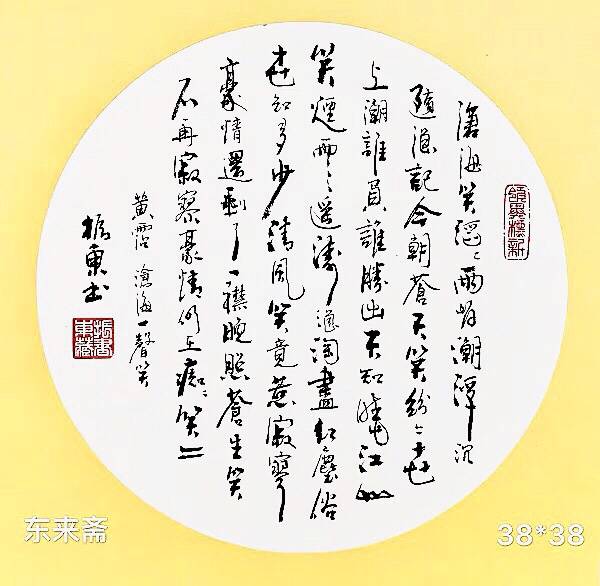 滄海笑滔〻兩岸潮浮沉
隨浪記今朝蒼天笑紛〻世
上潮誰負誰勝出天知曉江山
笑煙雨〻遥濤浪淘盡紅塵俗
世知多少清風笑竟惹寂寥
豪情還剩了一襟晚照蒼生笑
不再寂寥豪情仍在痴〻笑〻
黄霑滄海一聲笑
振東书
領異標新
东来斋
38*38